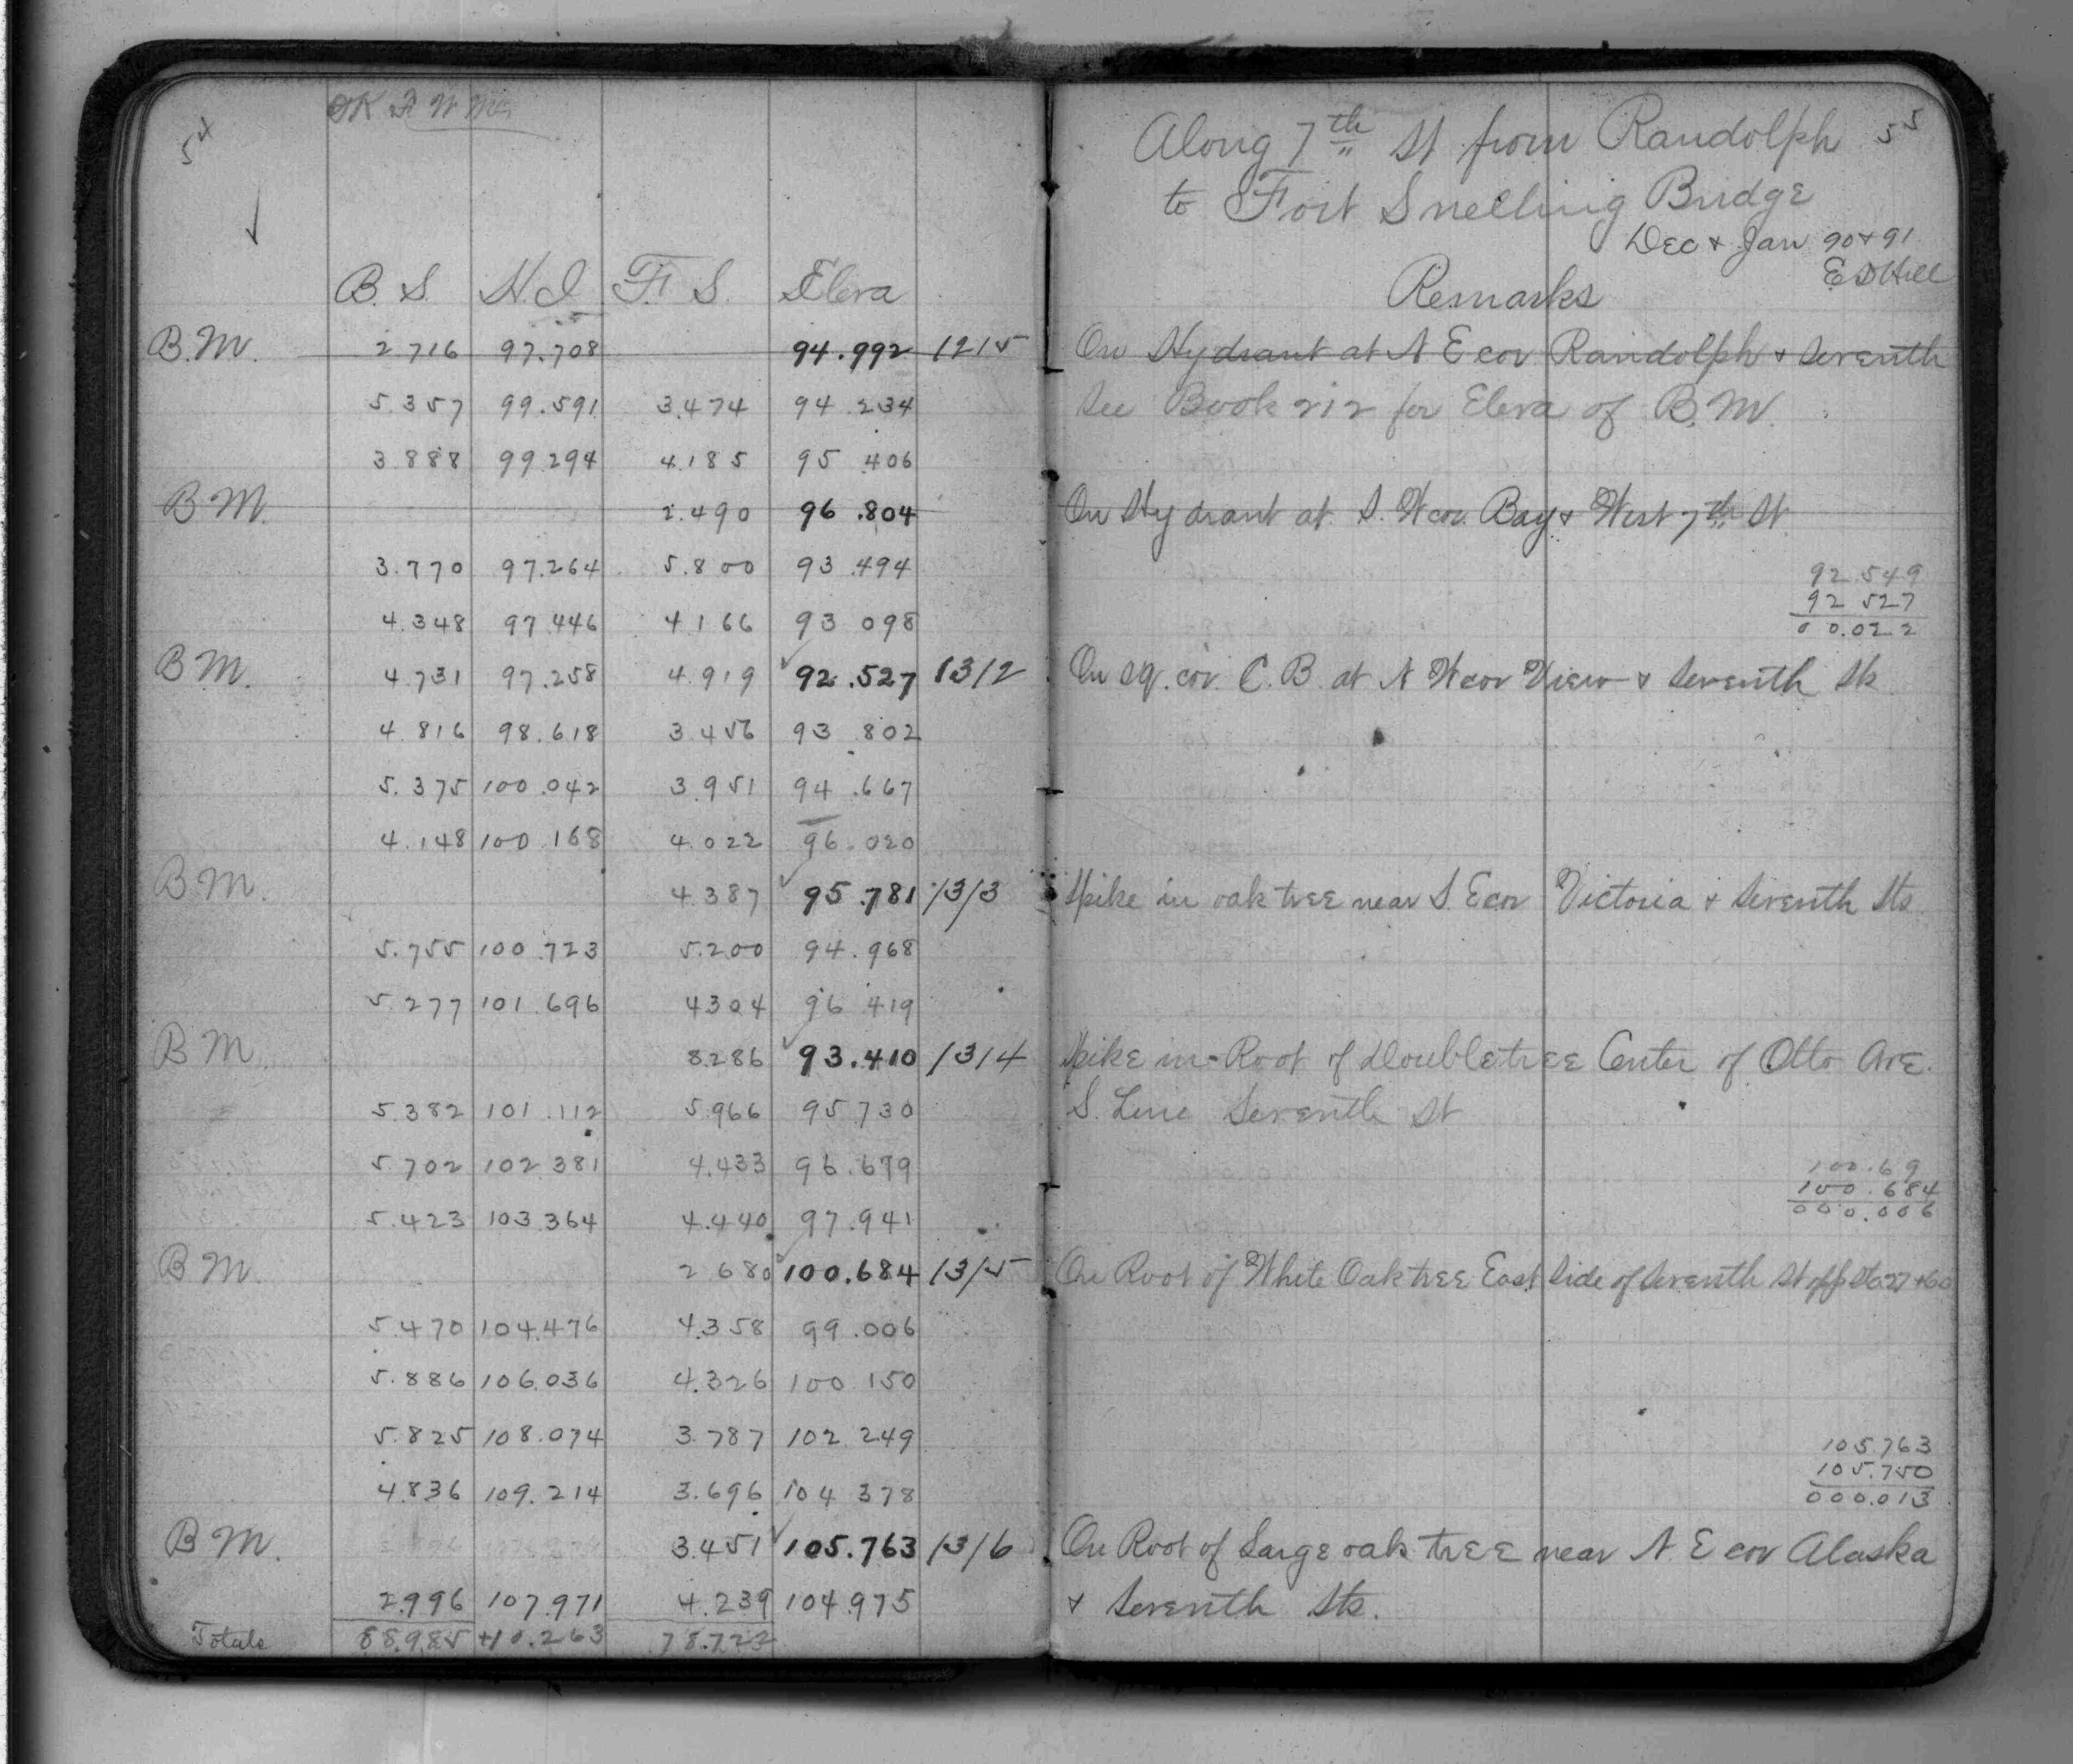 54
OK
B.S. H.I. F.S. Eleva
B.M. 2 716 97.708 94.992 1215
5.357 99.591 3.474 94.234
3.888 99.294 4.185 95 406
B M. 2.490 96.804
3.770 97.264 5.800 93.494
4.348 97.446 4 166 93 098
B M. 4.731 97.258 4.919 92.527 1312
4.816 98.618 3 456 93 802
5.375 100.042 3.951 94.667
4.148 100.168 4.022 96.020
B M. 4.387 95.781 1313
5.755 100.723 5.200 94.968
5.277 101.696 4304 96 419
B M 8.286 93.410 1314
5.382 101.112 5.966 95 730
5.702 102 381 4.433 96.679
5.423 103.364 4.440 97.941
B M. 2 680 100.684 1315
5.470 104.476 4.358 99.006
5.886 106.036 4.326 100 150
5.825 108.074 3.787 102 249
4.836 109.214 3.696 104 378
B M. 3.451 105.763 1316
2.996 107.971 4.239 104.975
Totals 88.985 +10.263 78.722
55
Along 7th St from Randolph
to Fort Snelling Bridge
Dec + Jan 90 + 91
E D Hill
Remarks
On Hydrant at N E cor Randolph + Seventh
See Book 212 for Eleva of B.M.
On Hydrant at S. W cor Bay + West 7th St
92.549
92 527
00.022
On sq. cor. C.B. at N W cor View + Seventh Sts
Spike in oak tree near S. E cor Victoria + Seventh Sts.
Spike in Root of Double tree Center of Otto Ave.
S. Line Seventh St
100.69
100.684
000.006
On Root of White Oak tree East Side of Seventh St opp Sta 27+60
105.763
105.750
000.013
On Root of Large oak tree near N. E cor Alaska
+ Seventh Sts.